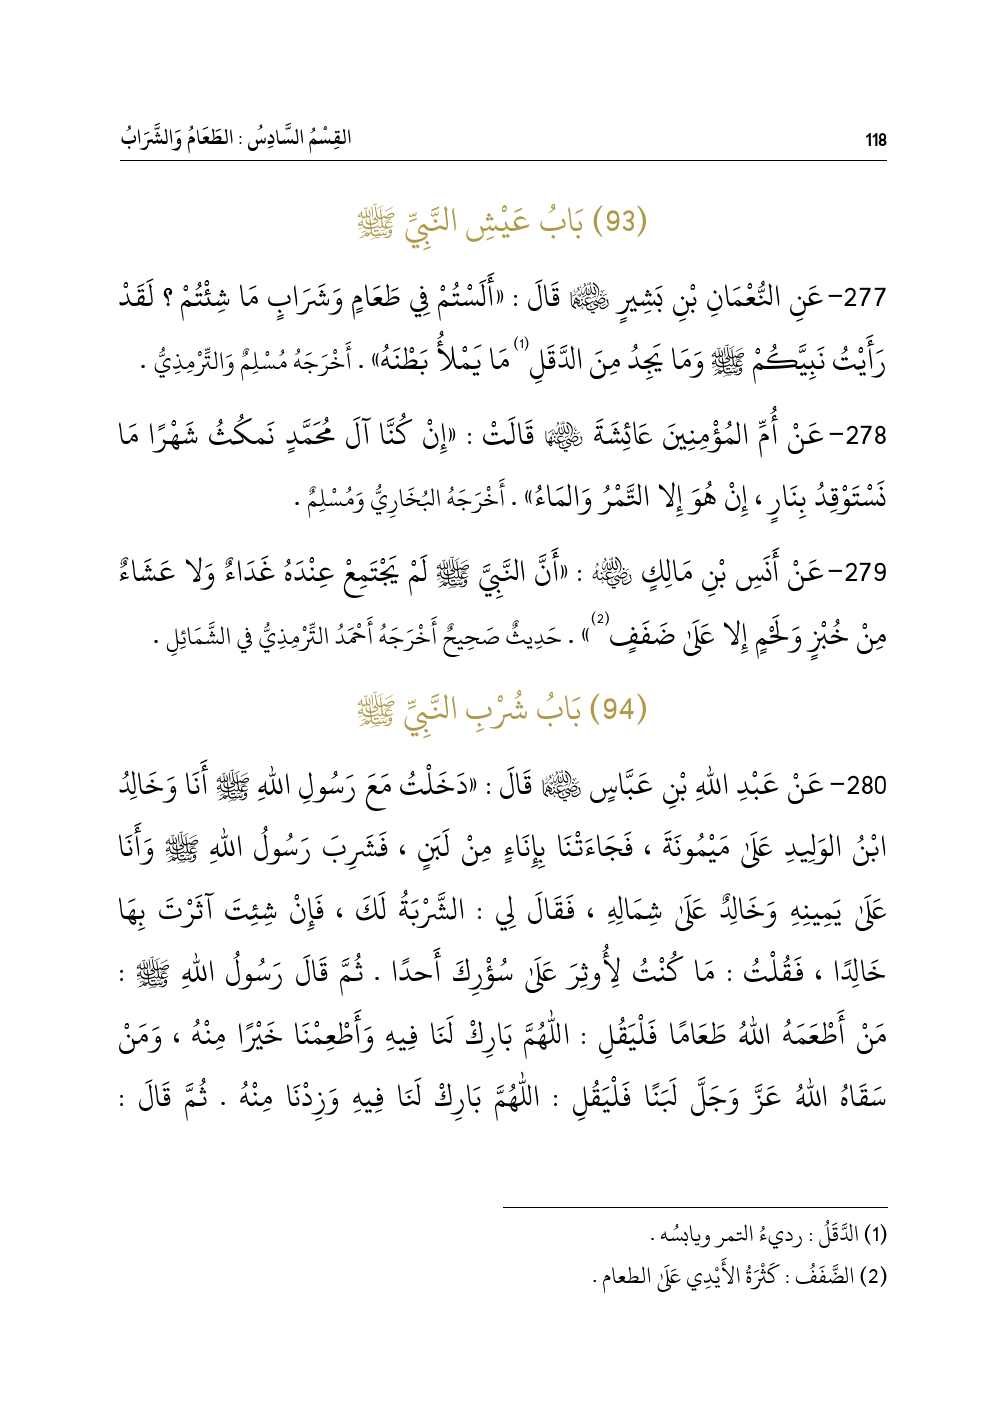 118
القِسْمُ السَّادِسُ : الطَعَامُ وَالشَّرَابُ
(93) بَابُ عَيْشِ النَّبِيِّ ﷺ
277– عَنِ النُّعْمَانِ بْنِ بَشِيرٍ رضي الله عنهما قَالَ : «أَلَسْتُمْ فِي طَعَامٍ وَشَرَابٍ مَا شِئْتُمْ ؟ لَقَدْ
رَأَيْتُ نَبِيَّكُمْ ﷺ وَمَا يَجِدُ مِنَ الدَّقَلِ(1) مَا يَمْلأُ بَطْنَهُ» . أَخْرَجَهُ مُسْلِمٌ وَالتِّرْمِذِيُّ .
278– عَنْ أُمِّ المُؤْمِنِينَ عَائِشَةَ رضي الله عنها قَالَتْ : «إِنْ كُنَّا آلَ مُحَمَّدٍ نَمكُثُ شَهْرًا مَا
نَسْتَوْقِدُ بِنَارٍ ، إِنْ هُوَ إِلا التَّمْرُ وَالمَاءُ» . أَخْرَجَهُ البُخَارِيُّ وَمُسْلِمٌ .
279– عَنْ أَنَسِ بْنِ مَالِكٍ رضي الله عنه : «أَنَّ النَّبِيَّ ﷺ لَمْ يَجْتَمِعْ عِنْدَهُ غَدَاءٌ وَلا عَشَاءٌ
مِنْ خُبْزٍ وَلَحْمٍ إِلا عَلَىٰ ضَفَفٍ(2)» . حَدِيثٌ صَحِيحٌ أَخْرَجَهُ أَحْمَدُ التِّرْمِذِيُّ في الشَّمَائِلِ .
(94) بَابُ شُرْبِ النَّبِيِّ ﷺ
280– عَنْ عَبْدِ اللهِ بْنِ عَبَّاسٍ رضي الله عنهما قَالَ : «دَخَلْتُ مَعَ رَسُولِ اللهِ ﷺ أَنَا وَخَالِدُ
ابْنُ الوَلِيدِ عَلَىٰ مَيْمُونَةَ ، فَجَاءَتْنَا بِإِنَاءٍ مِنْ لَبَنٍ ، فَشَرِبَ رَسُولُ اللهِ ﷺ وَأَنَا
عَلَىٰ يَمِينِهِ وَخَالِدٌ عَلَىٰ شِمَالِهِ ، فَقَالَ لِي : الشَّرْبَةُ لَكَ ، فَإِنْ شِئِتَ آثَرْتَ بِهَا
خَالِدًا ، فَقُلْتُ : مَا كُنْتُ لِأُوثِرَ عَلَىٰ سُؤْرِكَ أَحدًا . ثُمَّ قَالَ رَسُولُ اللهِ ﷺ :
مَنْ أَطْعَمَهُ اللهُ طَعَامًا فَلْيَقُلِ : اللهُمَّ بَارِكْ لَنَا فِيهِ وَأَطْعِمْنَا خَيْرًا مِنْهُ ، وَمَنْ
سَقَاهُ اللهُ عَزَّ وَجَلَّ لَبَنًا فَلْيَقُلِ : اللهُمَّ بَارِكْ لَنَا فِيهِ وَزِدْنَا مِنْهُ . ثُمَّ قَالَ :
(1) الدَّقَلُ : رديءُ التمر ويابسُه .
(2) الضَّفَفُ : كَثْرَةُ الأَيْدِي عَلَىٰ الطعام .